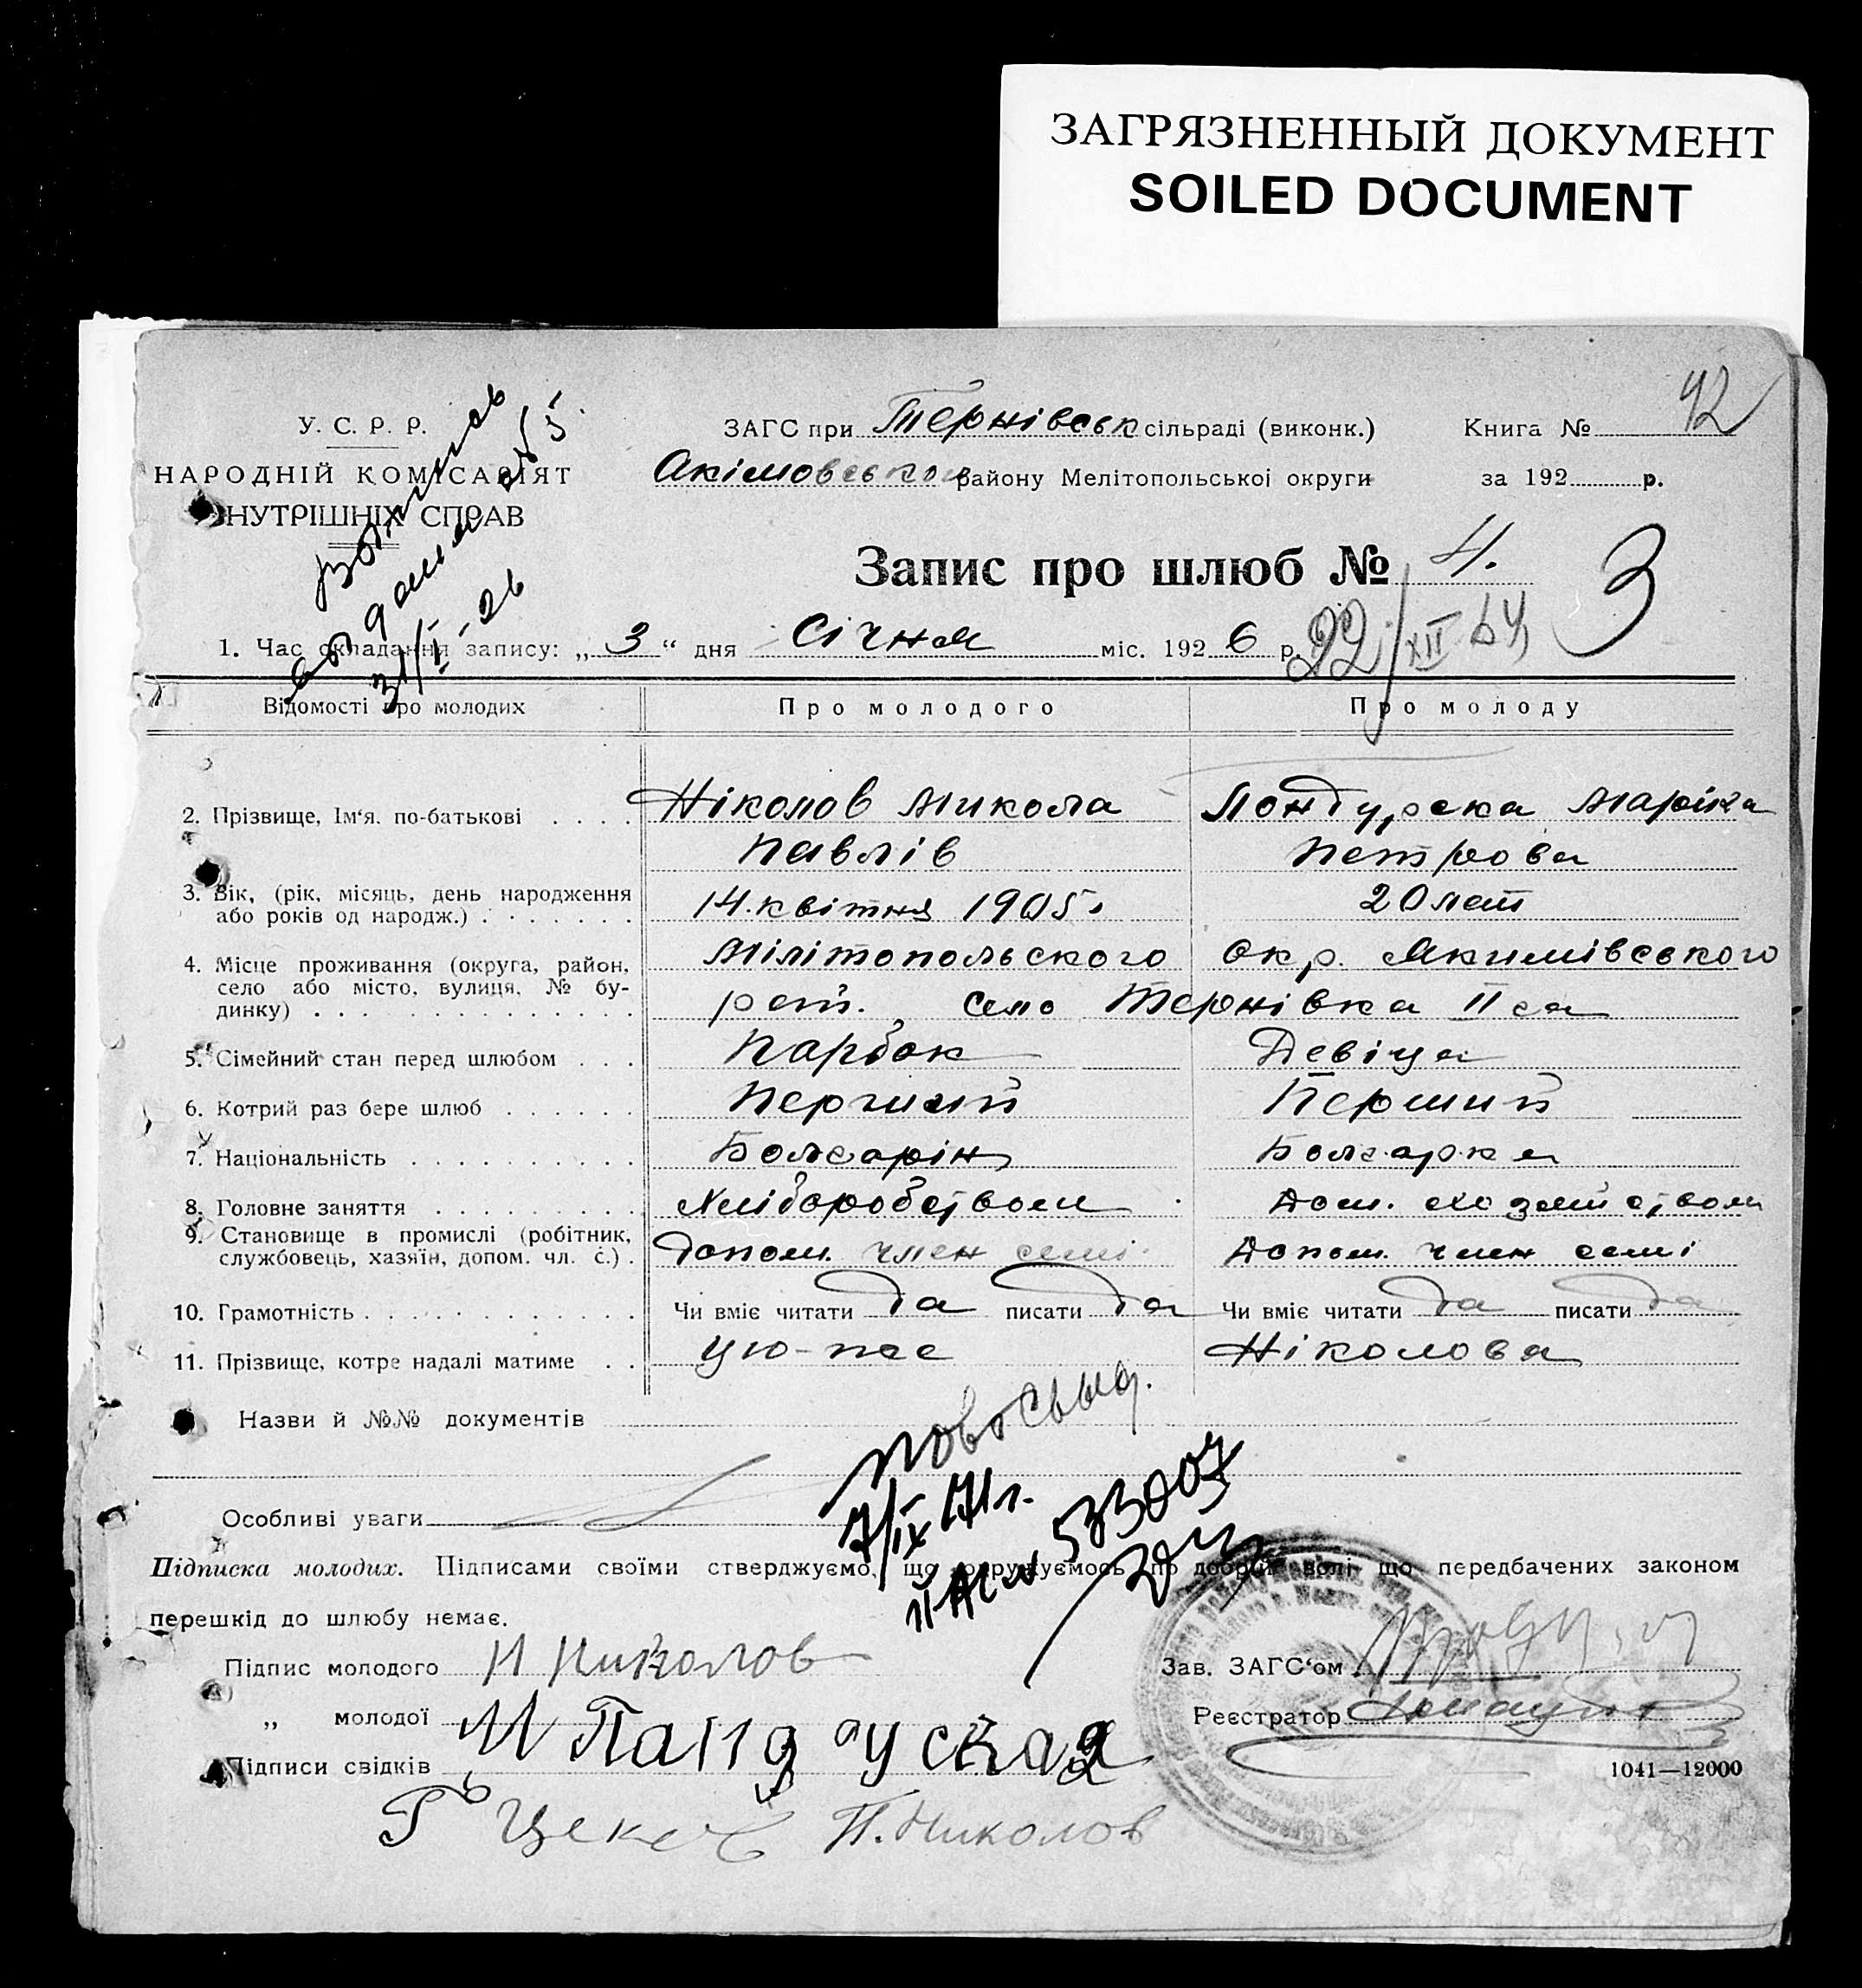 ЗАГРЯЗНЕННЫЙ ДОКУМЕНТ
SOILED DOCUMENT
42
У. С. Р. Р.
НАРОДНІЙ КОМІСАРІЯТ
ВНУТРІШНІХ СПРАВ
31/I-26
ЗАГС при Тернівськ сільраді (виконк.)
Книга №
Акімовськой району Мелітопольської округи
за 192 р.
Запис про шлюб № 4.
3
1. Час складання запису: „ 3 “ дня Січня міс. 192 6 р.
22/XII 64
Відомості про молодих
Про молодого
Про молоду
2. Прізвище, Ім‘я, по-батькові . . . .
Ніколов Микола
Павлів
Пондурска Маріка
Петрова
3. Вік, (рік, місяць, день народження
або років од народж.) . . . . . . .
14. квітня 1905
20 лет
4. Місце проживання (округа, район,
село або місто, вулиця, № бу-
динку) . . . . . . . . . . . . . .
Мілітопольского Окр. Якимівського
рай. село Тернівка II са
5. Сімейний стан перед шлюбом . . .
Парбок
Девіца
6. Котрий раз бере шлюб . . . . . .
Перший
Перший
7. Національність . . . . . . . . . .
Болгарін
Болгарка
8. Головне заняття . . . . . . . . .
Хліборобством
Дом. хозяйством
9. Становище в промислі (робітник,
службовець, хазяїн, допом. чл. с.) .
Допом. член семі
Допом. член семі
10. Грамотність . . . . . . . . . . . .
Чи вміє читати да писати да
Чи вміє читати да писати да
11. Прізвище, котре надалі матиме . .
цю-же
Ніколова
Назви й №№ документів
Особливі уваги
7/IX 71г.
533007
Підписка молодих. Підписами своїми стверджуємо, що одружуємось по добрій волі що передбачених законом
перешкід до шлюбу немає.
Підпис молодого Н Николов
Зав. ЗАГС‘ом
„ молодої М Пандурская
Реєстратор
Підписи свідків
1041—12000
П. Николов